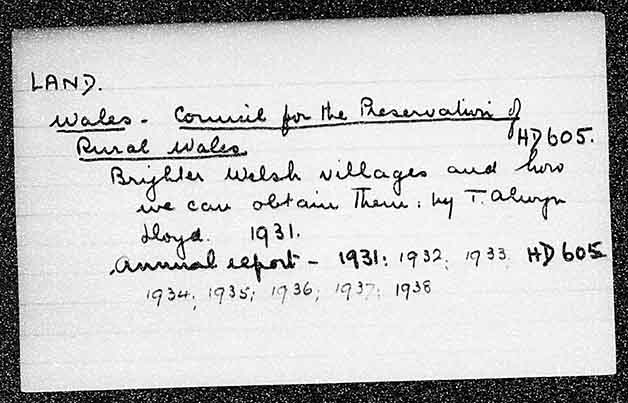 LAND.
Wales - Council for the Preservation of
Rural Wales HD 605.
Brighter Welsh villages and how
we can obtain them: by T. Alwyn
Lloyd. 1931.
Annual report - 1931; 1932; 1933 HD 605
1934; 1935; 1936; 1937; 1938